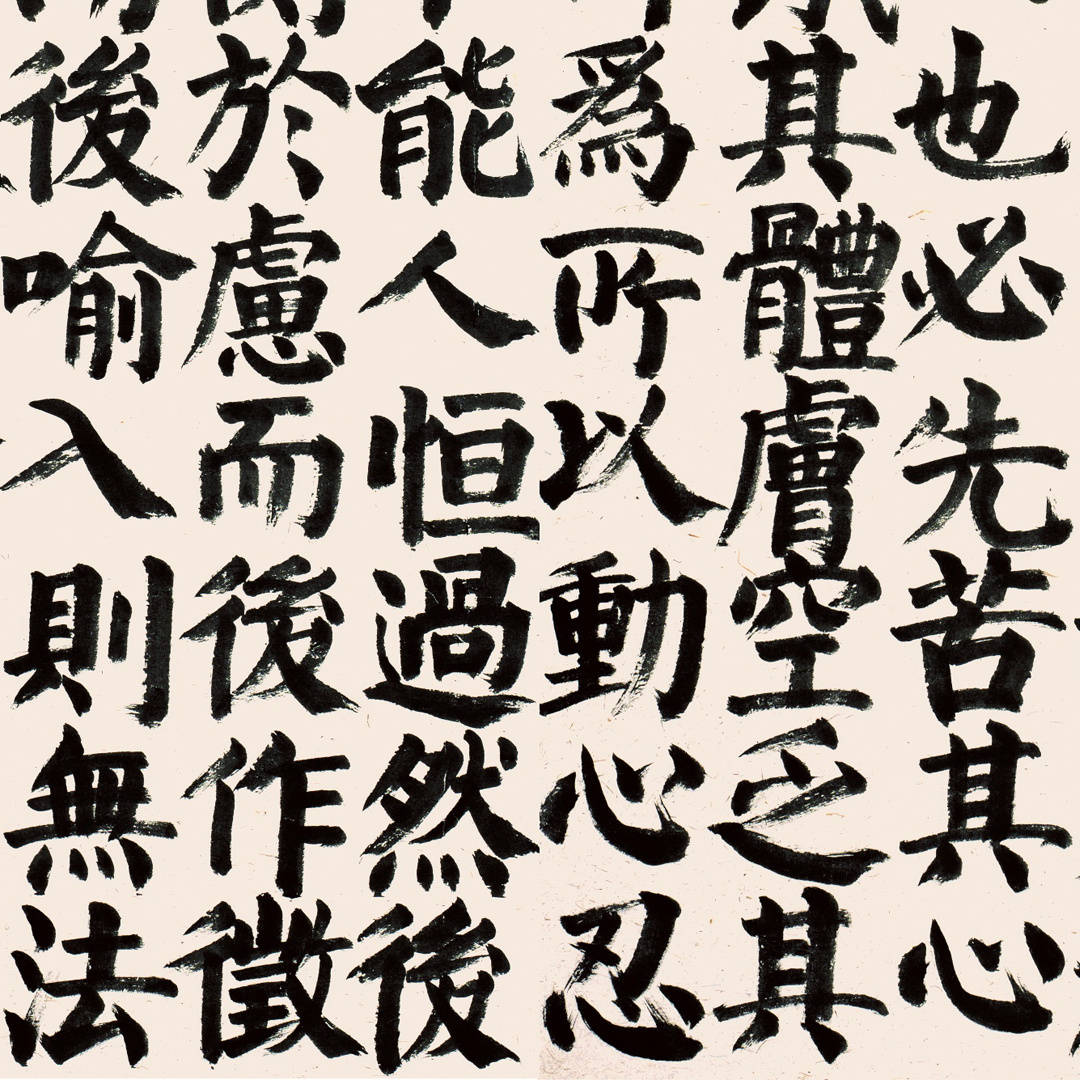 也必先苦其心
其體膚空乏其
爲所以動心忍
能人恒過然後
於慮而後作徵
後喻入則無法